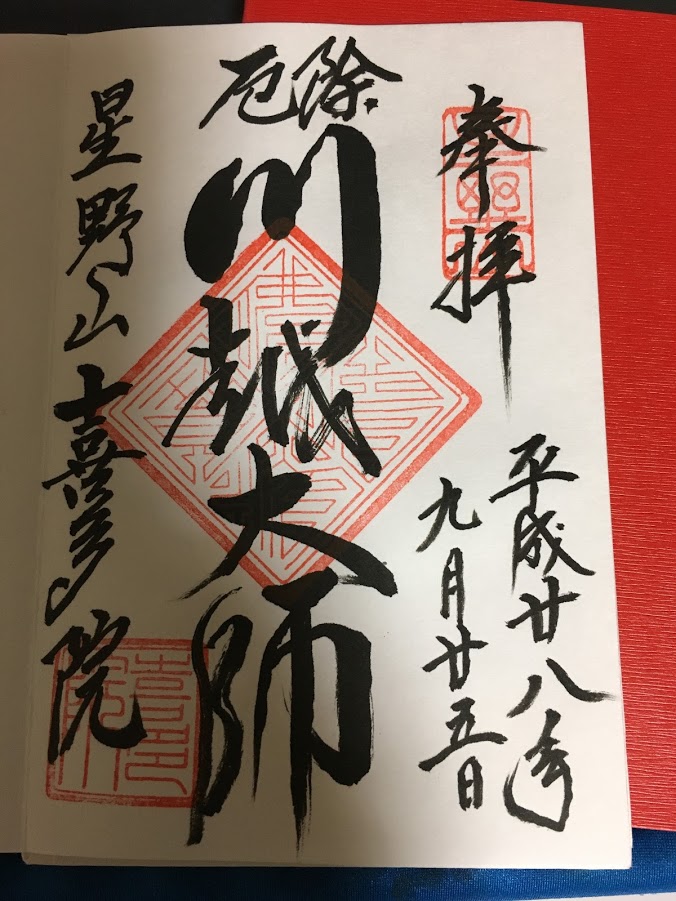 奉拝
平成廿八年
九月廿五日
厄除
川越大師
星野山喜多院